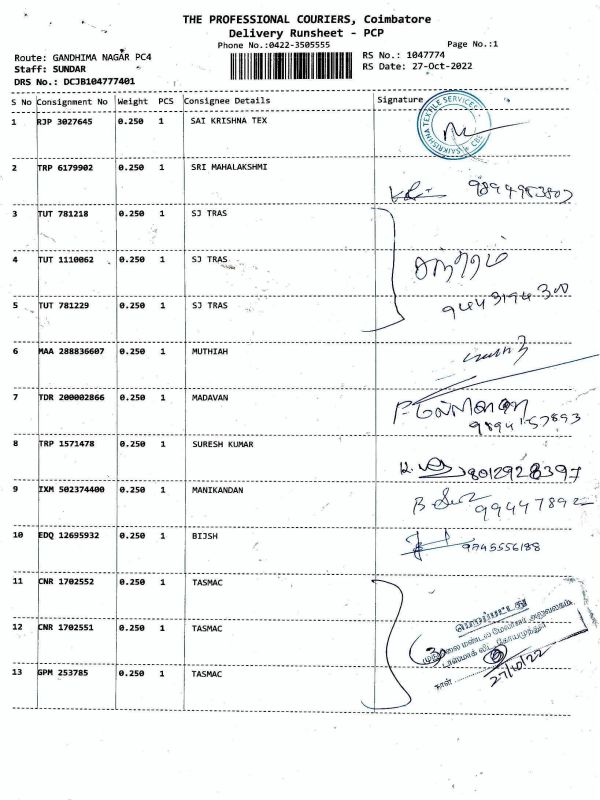 THE PROFESSIONAL COURIERS, Coimbatore
Delivery Runsheet - PCP
Phone No.:0422-3505555
Page No.:1
Route: GANDHIMA NAGAR PC4
RS No.: 1047774
Staff: SUNDAR
RS Date: 27-Oct-2022
DRS No.: DCJB104777401
S No Consignment No Weight PCS Consignee Details Signature
1 RJP 3027645 0.250 1 SAI KRISHNA TEX
SAIKRISHNA TEXTILE SERVICES CBE
2 TRP 6179902 0.250 1 SRI MAHALAKSHMI
3 TUT 781218 0.250 1 SJ TRAS
4 TUT 1110062 0.250 1 SJ TRAS
5 TUT 781229 0.250 1 SJ TRAS
6 MAA 288836607 0.250 1 MUTHIAH
7 TDR 200002866 0.250 1 MADAVAN
8 TRP 1571478 0.250 1 SURESH KUMAR
8012928397
9 IXM 502374400 0.250 1 MANIKANDAN
99447892
10 EDQ 12695932 0.250 1 BIJSH
9745556188
11 CNR 1702552 0.250 1 TASMAC
12 CNR 1702551 0.250 1 TASMAC
13 GPM 253785 0.250 1 TASMAC
நாள் 27/10/22